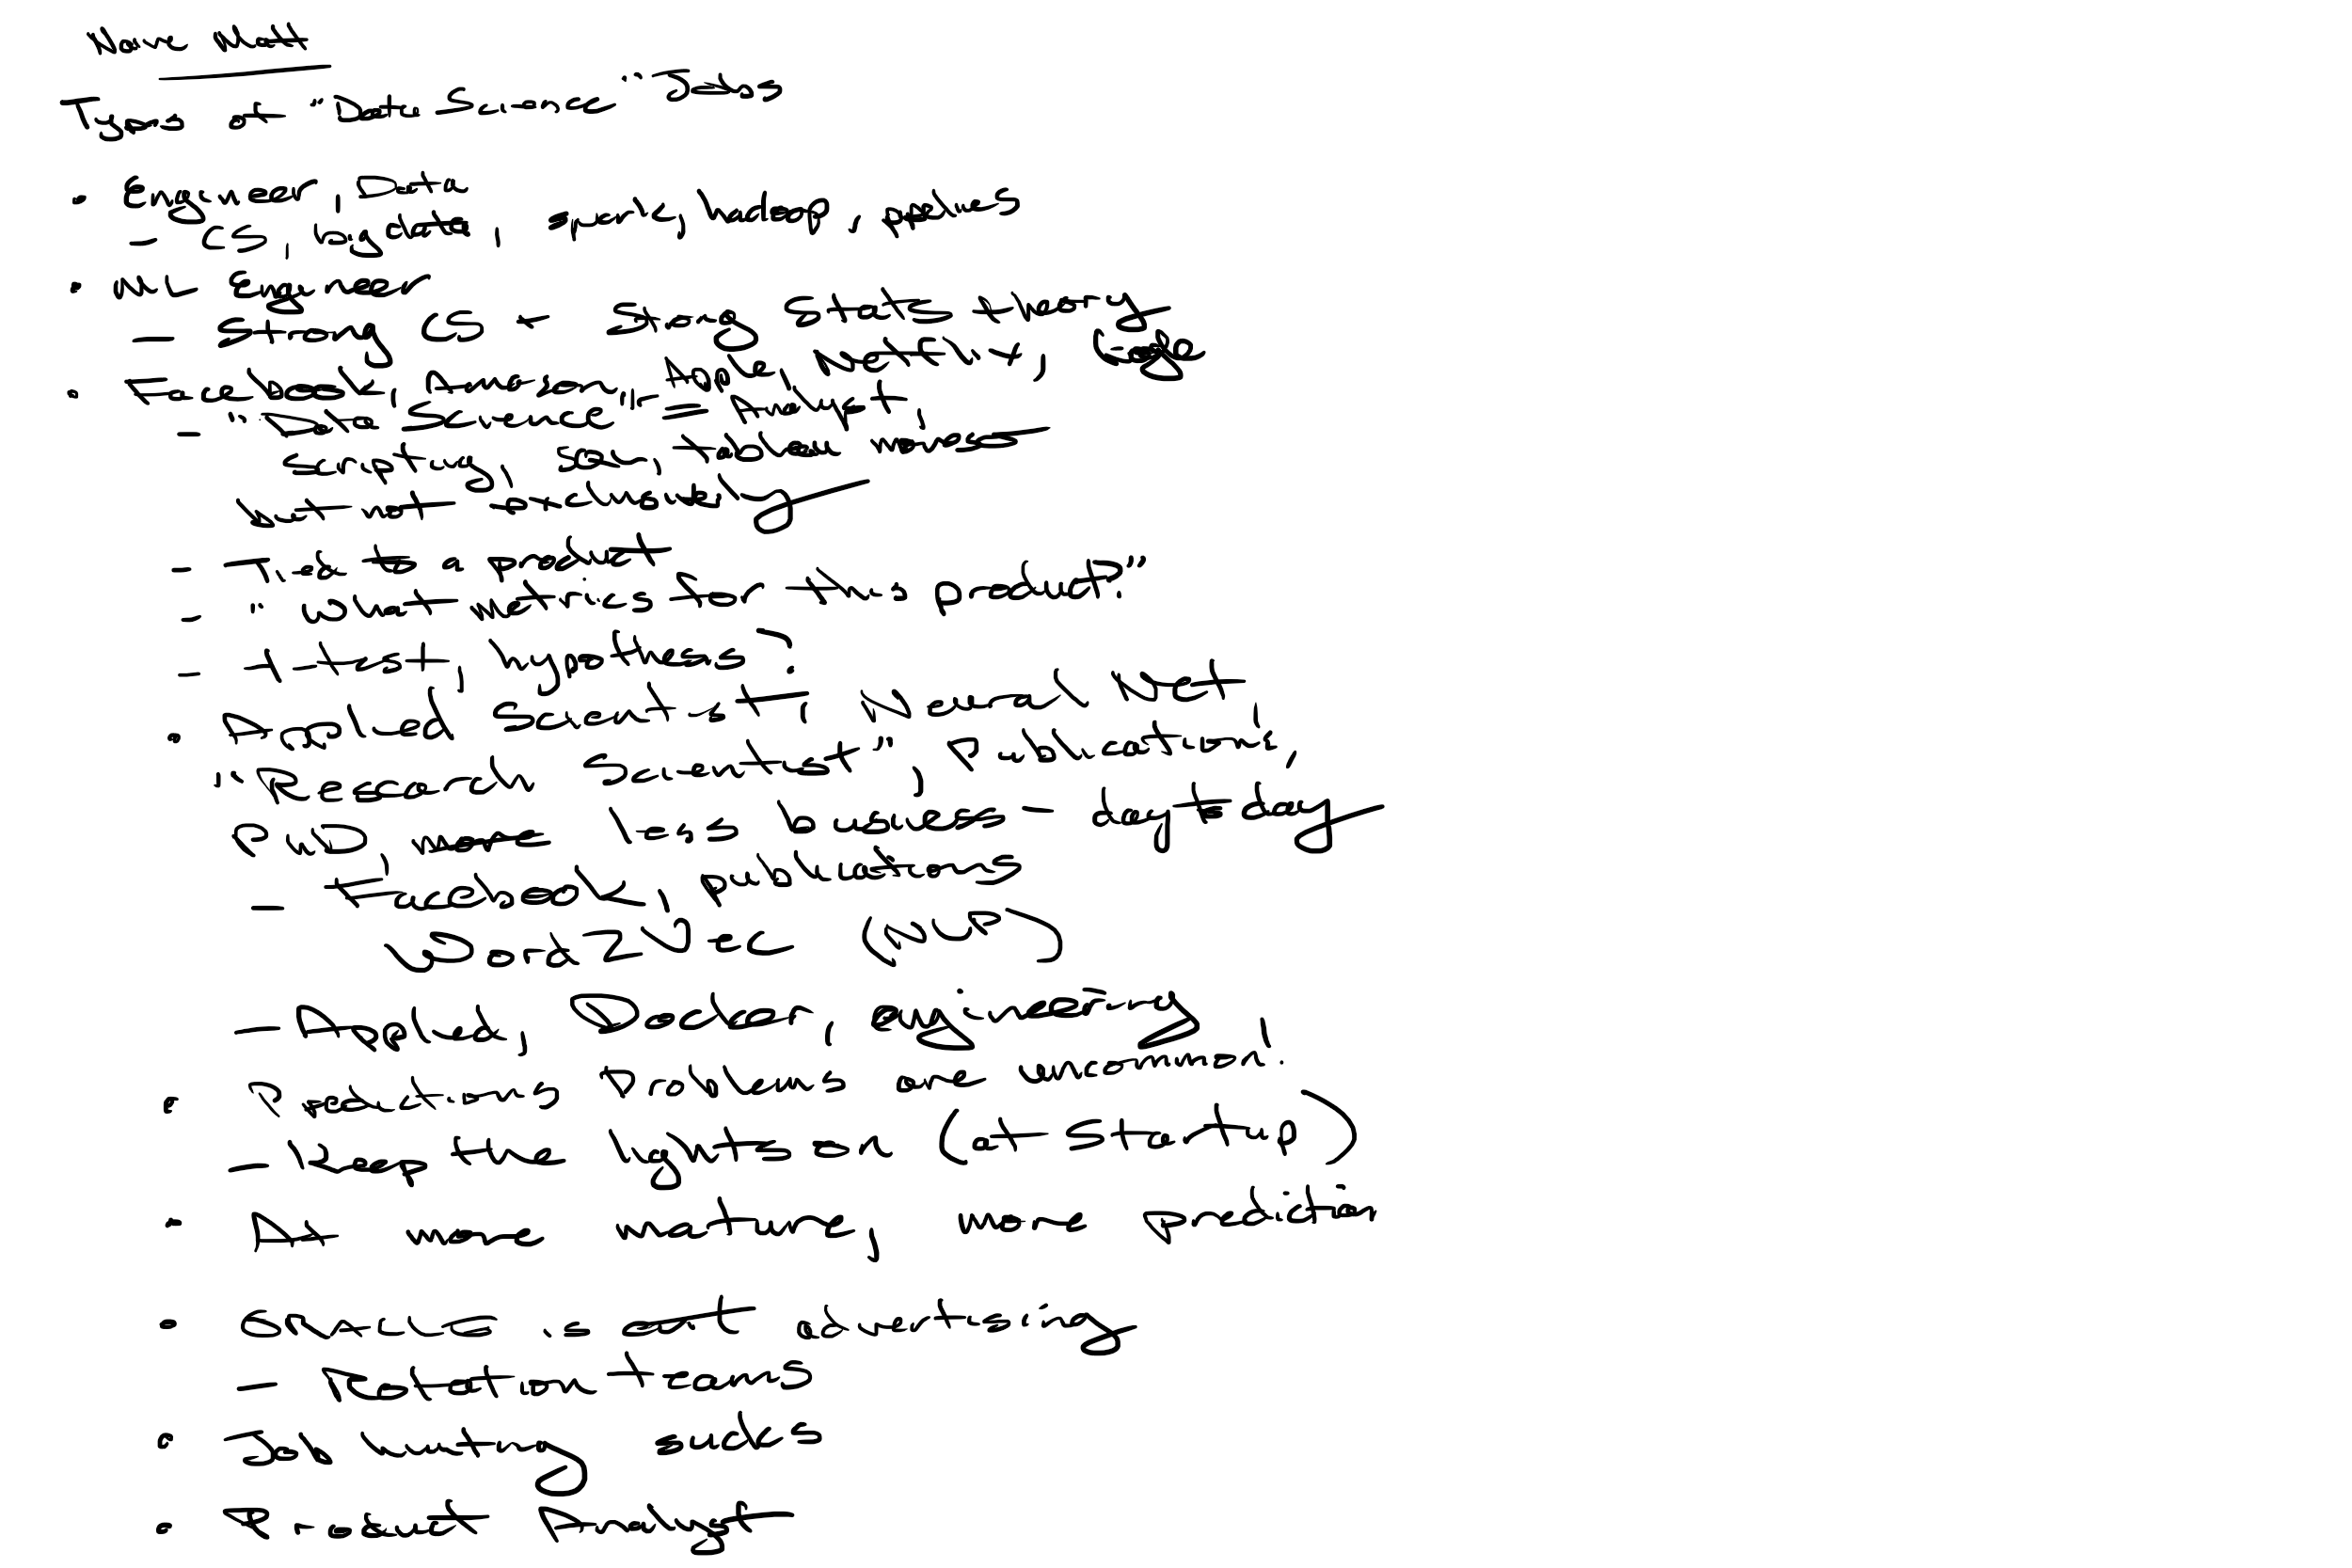 Types of "Data Science" Jobs
• Engineer, Data
- CS, big data, spark, hadoop, pipelines
• ML Engineer
- Strong CS + Strong stats theory
• Facebook, Amazon, Apple, Netflix, Google
- "Data Science" = Analyst,
Scripting, SQL, tableau
but not exclusively
- Tied to a product
- "What metrics for this product?"
- t-test, hypothesis?
• Applied Scientist, Neural Net,
"Research Scientist", Publications,
PhD, less business - day to day
- Facebook, publications
Word2Vec (NLP)
- Applied, Docker, engineering
• Predictions Problems are uncommon!
- Keep the lights on (at startup)
• At more mature, more prediction
• is advertising
- Rotation teams
• Job hunting sucks
• Product Analyst